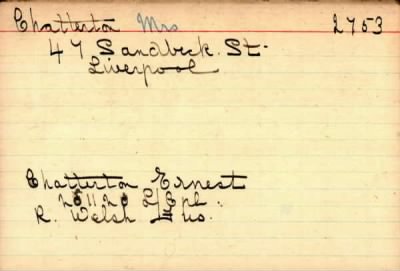 Chatterton Mrs 2753
47 Sandbeck. St.
Liverpool
Chatterton Ernest
281120 L/Cpl.
R. Welsh Fus.